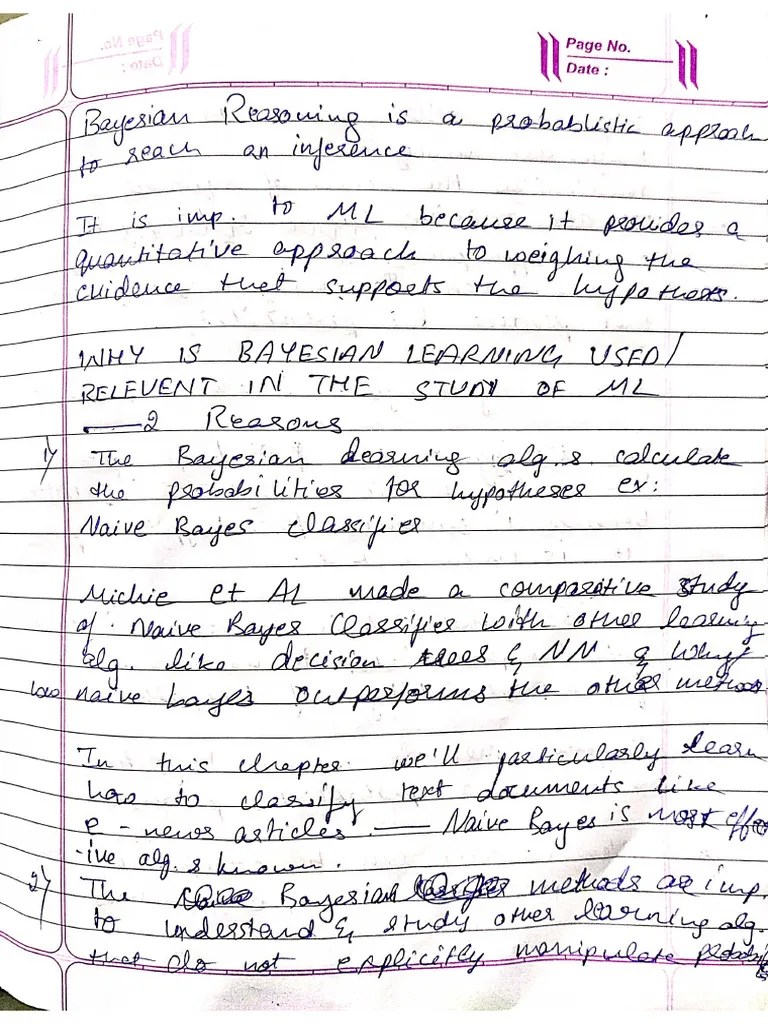 Page No.
Date :
Bayesian Reasoning is a probablistic approach
to reach an inference
It is imp. to ML because it provides a
quantitative approach to weighing the
evidence that supports the hypothesis.
WHY IS BAYESIAN LEARNING USED/
RELEVENT IN THE STUDY OF ML
— 2 Reasons
1) The Bayesian learning alg.s calculate
the probabilities for hypotheses ex:
Naive Bayes Classifier
Michie et AL made a comparative study
of Naive Bayes Classifier with other learning
alg. like decision trees & NN & why
how naive bayes outperforms the other methods
In this chapter we'll particularly learn
how to classify text documents like
e-news articles. — Naive Bayes is most effect
-ive alg.s known.
2) The Bayesian methods are imp.
to understand & study other learning alg.
that do not explicitly manipulate